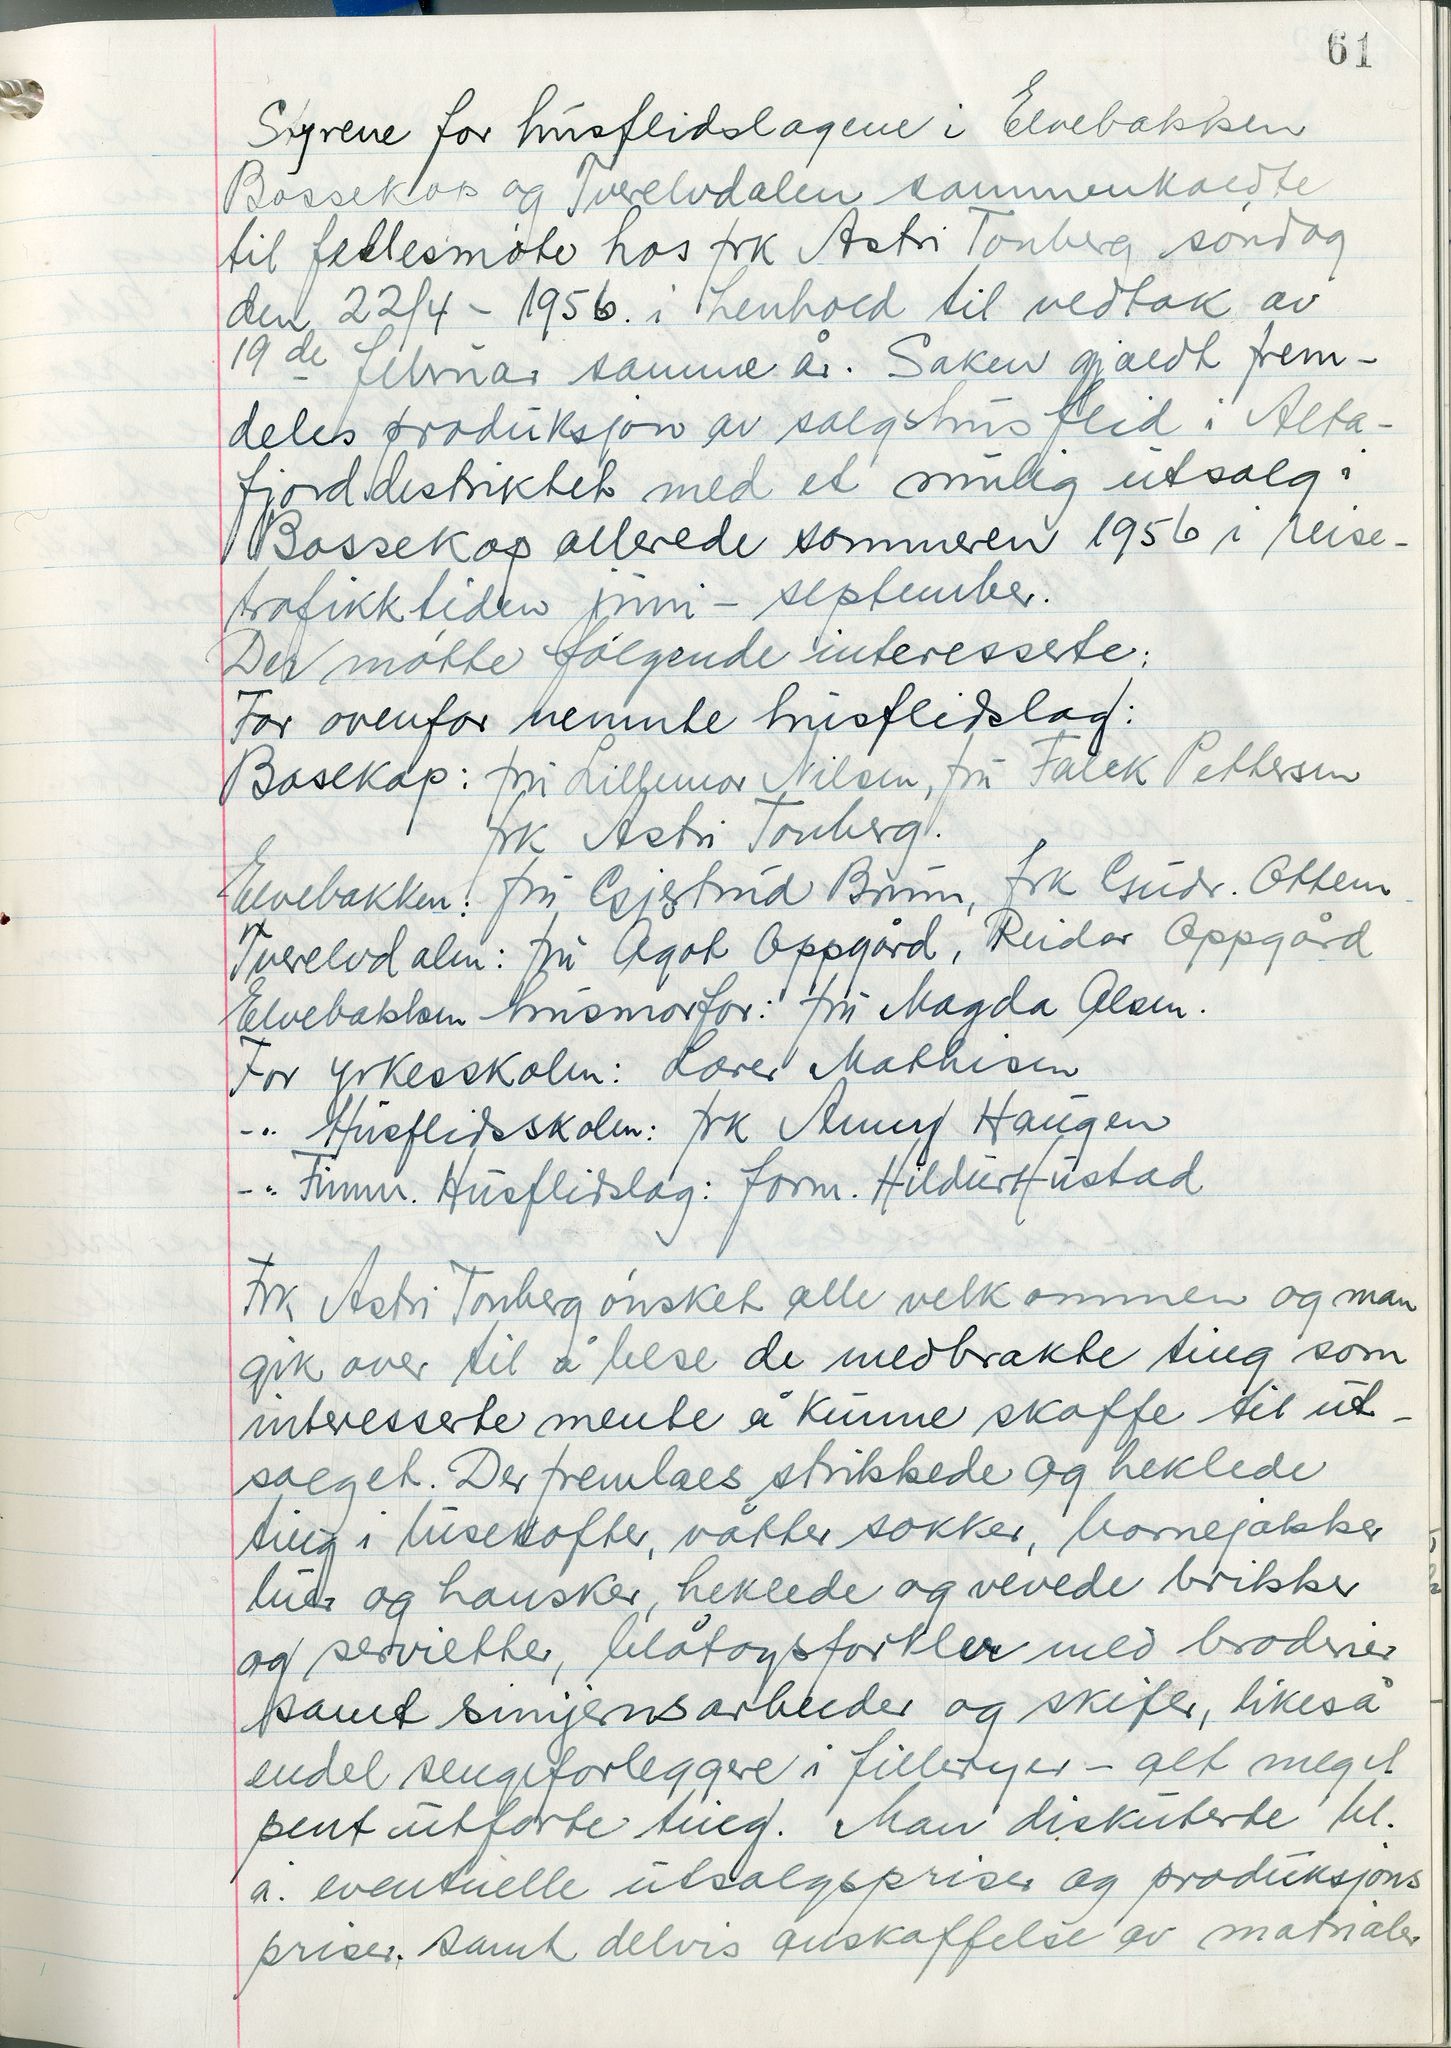 61
Styrene for husflidslagene i Elvebakken
Bossekop og Tverelvdalen sammenkaldte
til fellesmøte hos frk Astri Tonberg søndag
den 22/4 - 1956. i henhold til vedtak av
19de februar samme år. Saken gjaldt frem-
deles produksjon av salgshusflid i Alta-
fjord.destriktet med et mulig utsalg i
Bossekop allerede sommeren 1956 i reise-
trafikktiden juni - september.
Der møtte følgende interesserte:
For ovenfor nemnte husflidslag:
Bosekop: fru Lillemor Nilsen, fru Falck Pettersen
frk Astri Tonberg.
Elvebakken: fru Gjertrud Bruun, frk Gudr. Ottem
Tverelvdalen: fru Agot Oppgård, Reidar Oppgård
Elvebakken husmorfor: fru Magda Olsen.
For yrkesskolen: Lærer Mathisen
-"- Husflidsskolen: frk Anny Haugen
-"- Finnm. Husflidslag: form. Hildur Hustad
Frk Astri Tonberg ønsket alle velkommen og man
gik over til å bese de medbrakte ting som
interesserte mente å kunne skaffe til ut-
salget. Der fremlaes strikkede og heklede
ting i lusekofter, våtter sokker, barnejakker
luer og hansker, heklede og vevede brikker
og servietter, blåtøysforklær med broderier
samt smijernsarbeider og skifer, likeså
endel sengeforleggere i filleryer - alt meget
pent utførte ting. Man diskuterte bl.
a. eventuelle utsalgspriser og produksjons
priser. samt delvis anskaffelse av matrialer